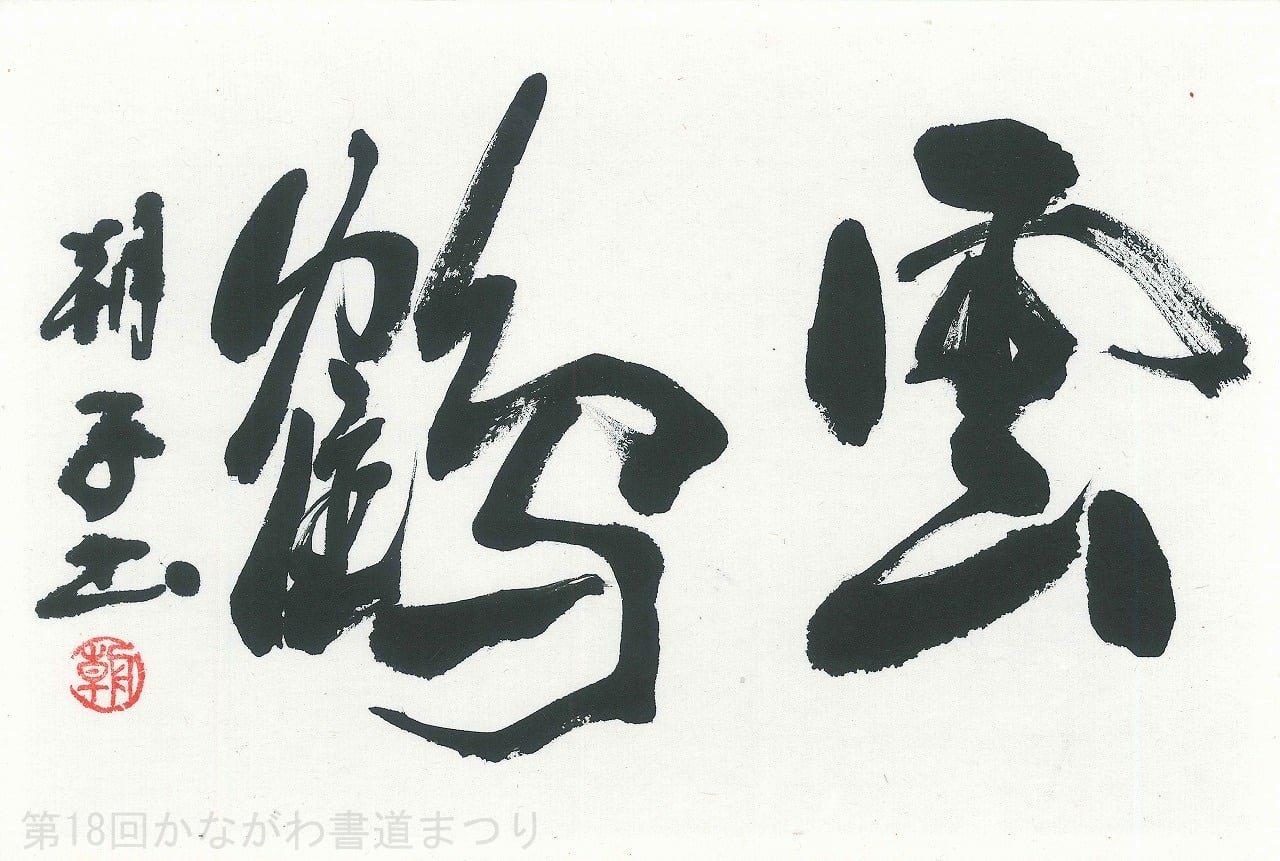 雲鶴
朝子书
朝
第18回かながわ書道まつり